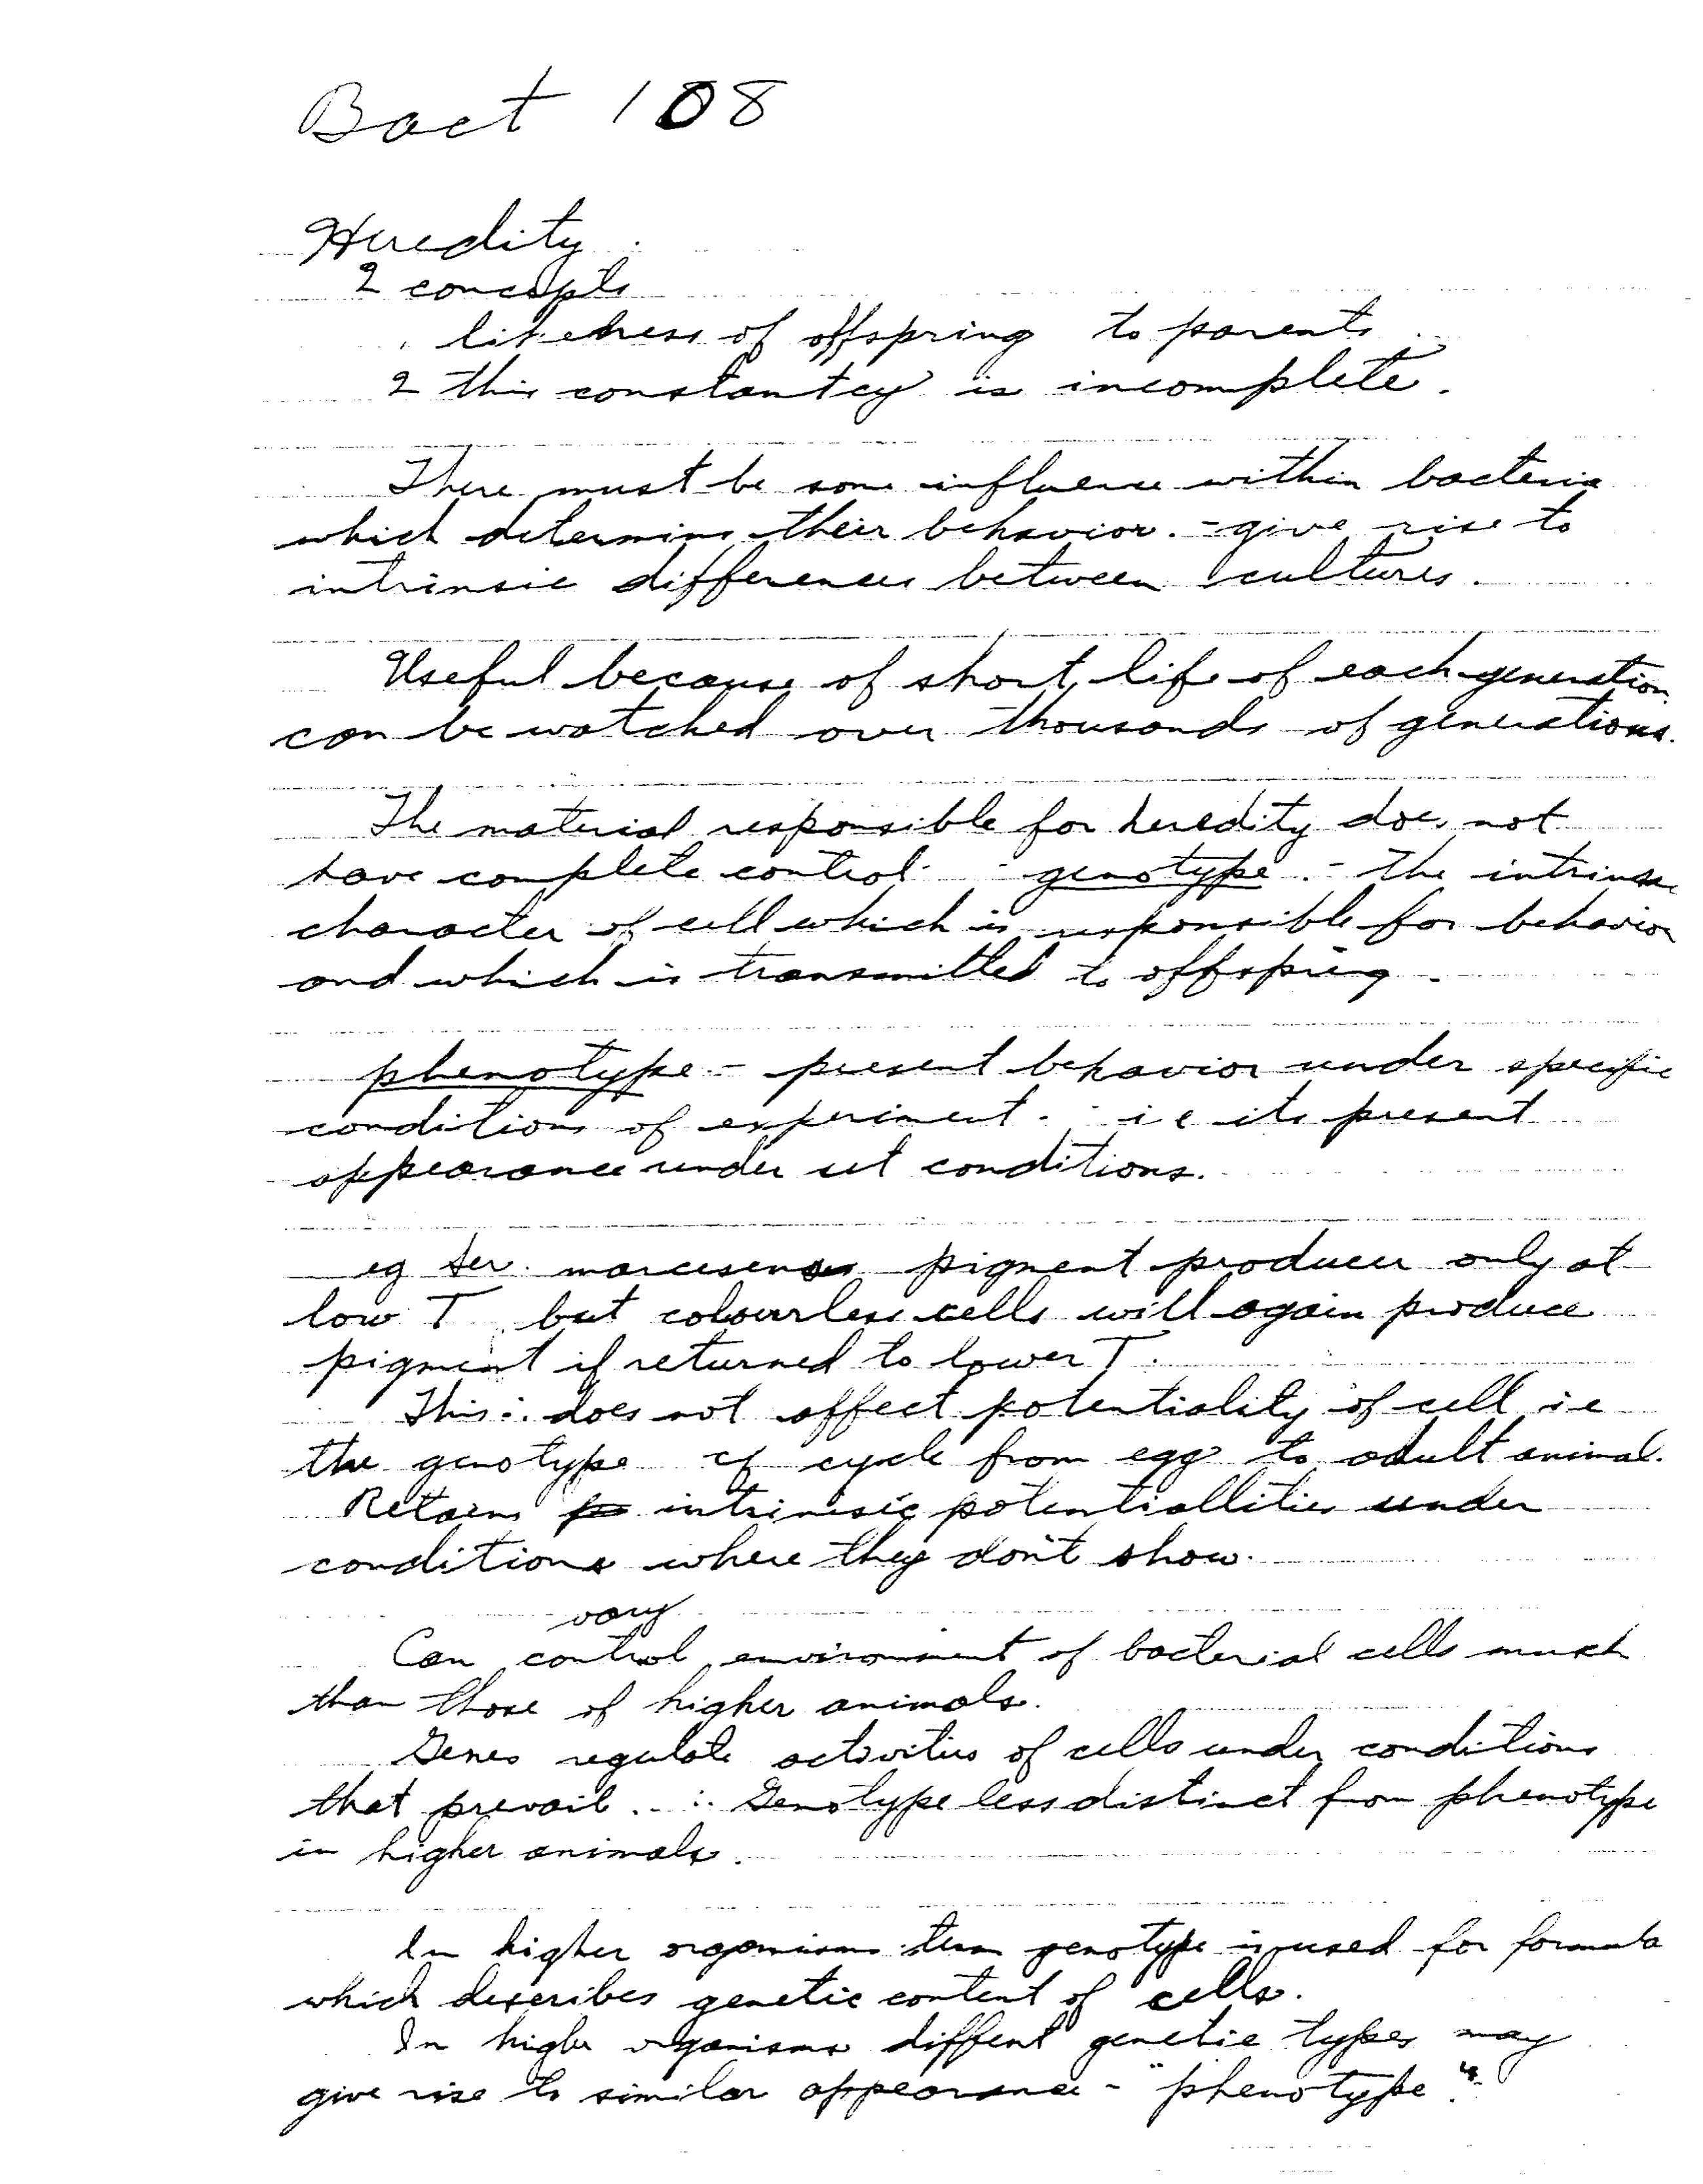 Bact 108
Heredity
2 concepts
likeness of offspring to parents
2 this constantcy is incomplete.
There must be some influence within bacteria
which determins their behavior. - give rise to
intrinsic differences between cultures.
Useful because of short life of each generation
can be watched over thousands of generations.
The material responsible for heredity does not
have complete control - genotype. - the intrinsic
character of cell which is responsible for behavior
and which is transmitted to offspring.
phenotype - present behavior under specific
conditions of experiment. i e its present
appearance under set conditions.
eg Ser. marcesens pigment producer only at
low T but colourless cells will again produce
pigment if returned to lower T.
This ∴ does not affect potentiality of cell i e
the genotype cf cycle from egg to adult animal.
Retains intrinsic potentiallities under
conditions where they don't show.
vary
Can control environment of bacterial cells much
than those of higher animals.
Genes regulate activities of cells under conditions
that prevail. ∴ Genotype less distinct from phenotype
in higher animals.
In higher organisms term genotype is used for formula
which describes genetic content of cells.
In higher organisms diffent genetic types may
give rise to similar appearance - "phenotype".